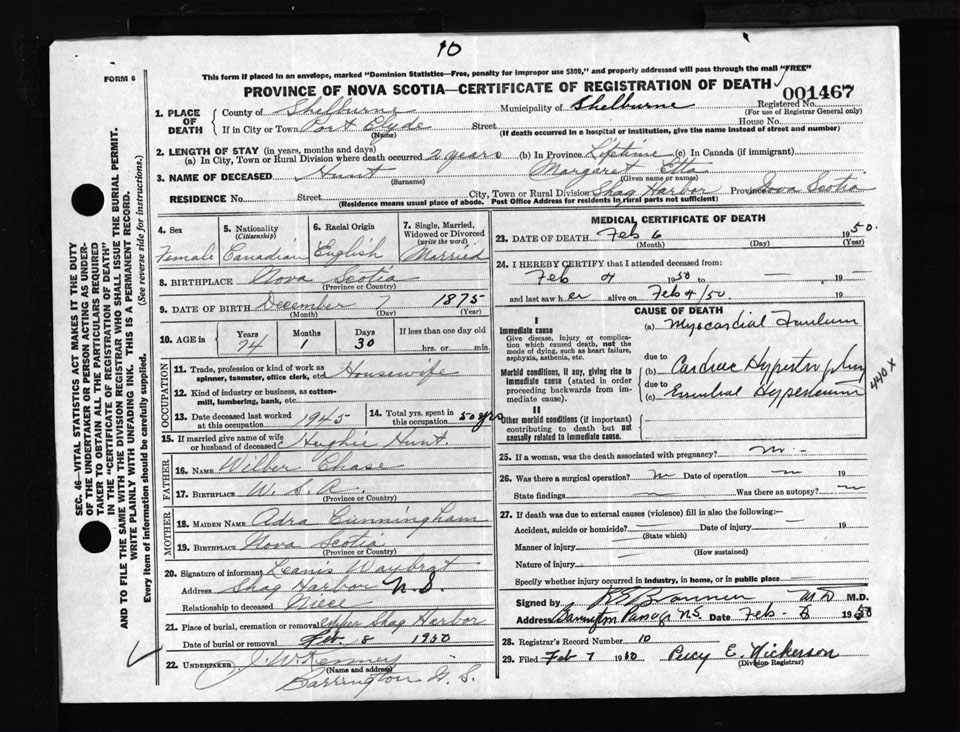 10
FORM 6
This form if placed in an envelope, marked "Dominion Statistics—Free, penalty for improper use $300," and properly addressed will pass through the mail "FREE"
PROVINCE OF NOVA SCOTIA—CERTIFICATE OF REGISTRATION OF DEATH
001467
1. PLACE OF DEATH
County of Shelburne Municipality of Shelburne Registered No.
(For use of Registrar General only)
If in City or Town Port Clyde Street House No.
(Name) (If death occurred in a hospital or institution, give the name instead of street and number)
2. LENGTH OF STAY (in years, months and days)
(a) In City, Town or Rural Division where death occurred 2 years (b) In Province Lifetime (c) In Canada (if immigrant)
3. NAME OF DECEASED Hunt Margaret Etta
(Surname) (Given name or names)
RESIDENCE No. Street City, Town or Rural Division Shag Harbor Province Nova Scotia
(Residence means usual place of abode. Post Office Address for residents in rural parts not sufficient)
4. Sex Female
5. Nationality (Citizenship) Canadian
6. Racial Origin English
7. Single, Married, Widowed or Divorced (write the word) Married
8. BIRTHPLACE Nova Scotia
(Province or Country)
9. DATE OF BIRTH December 7 1875
(Month) (Day) (Year)
10. AGE in Years 74 Months 1 Days 30 If less than one day hrs. or min.
OCCUPATION
11. Trade, profession or kind of work as spinner, teamster, office clerk, etc. Housewife
12. Kind of industry or business, as cotton-mill, lumbering, bank, etc.
13. Date deceased last worked at this occupation 1945
14. Total yrs. spent in this occupation 50 yrs
15. If married give name of wife or husband of deceased Hughie Hunt.
FATHER
16. NAME Wilber Chase
17. BIRTHPLACE
(Province or Country)
MOTHER
18. MAIDEN NAME Adra Cunningham
19. BIRTHPLACE Nova Scotia
(Province or Country)
20. Signature of informant Leanis Waybrat
Address Shag Harbor N.S.
Relationship to deceased Niece
21. Place of burial, cremation or removal Upper Shag Harbor
Date of burial or removal Feb. 8 1950
22. UNDERTAKER J. W. Kenney
(Name and address)
Barrington N.S.
MEDICAL CERTIFICATE OF DEATH
23. DATE OF DEATH Feb 6 1950.
(Month) (Day) (Year)
24. I HEREBY CERTIFY that I attended deceased from:
Feb 4 1950 to — 19—
and last saw her alive on Feb 4/50. 19—
CAUSE OF DEATH
I
Immediate cause
Give disease, injury or complication which caused death, not the mode of dying, such as heart failure, asphyxia, asthenia, etc.
(a) Myocardial
due to
Morbid conditions, if any, giving rise to immediate cause (stated in order proceeding backwards from immediate cause).
(b) Cardiac Hypertrophy
due to
(c) Essential Hypertension
440 X
II
Other morbid conditions (if important) contributing to death but not causally related to immediate cause.
25. If a woman, was the death associated with pregnancy?
26. Was there a surgical operation? Date of operation 19
State findings Was there an autopsy?
27. If death was due to external causes (violence) fill in also the following:—
Accident, suicide or homicide? Date of injury 19
(State which)
Manner of injury
(How sustained)
Nature of injury
Specify whether injury occurred in industry, in home, or in public place
Signed by M D M.D.
Address Barrington Passage N.S. Date Feb 1950
28. Registrar's Record Number 10
29. Filed Feb 7 1950 Percy E. Nickerson
(Division Registrar)
SEC. 46—VITAL STATISTICS ACT MAKES IT THE DUTY
OF THE UNDERTAKER OR PERSON ACTING AS UNDER-
TAKER TO OBTAIN ALL THE PARTICULARS REQUIRED
IN THE "CERTIFICATE OF REGISTRATION OF DEATH"
AND TO FILE THE SAME WITH THE DIVISION REGISTRAR WHO SHALL ISSUE THE BURIAL PERMIT.
WRITE PLAINLY WITH UNFADING INK. THIS IS A PERMANENT RECORD.
Every item of information should be carefully supplied. (See reverse side for instructions.)